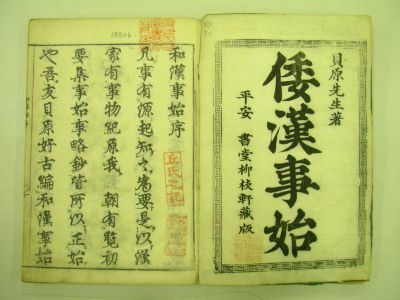 貝原先生著
倭漢事始
平安 書堂柳枝軒藏版
和漢事始序
凡事有源起知之為要是以漢
家有事物紀原我 朝有覧初
要集事始事略鈔皆所以正始
也吾友貝原好古編和漢事始